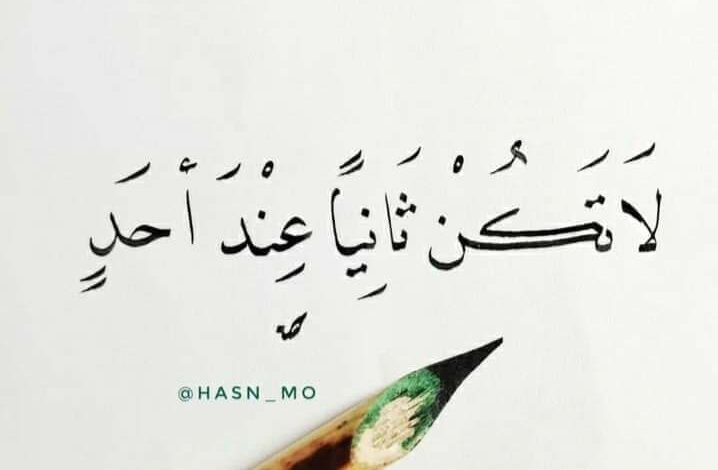 لَا تَكُنْ ثَانِيًا عِنْدَ أَحَدٍ
@HASN_MO